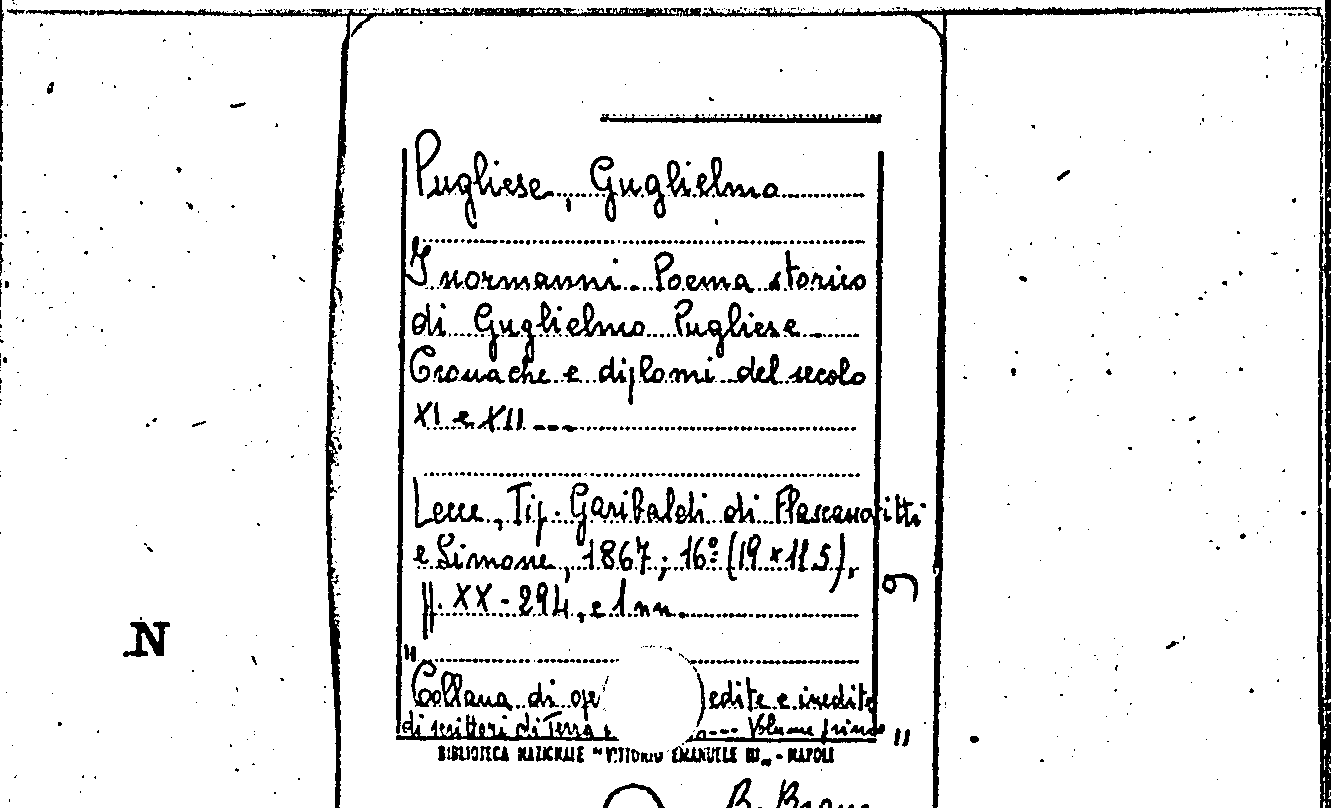 Pugliese, Guglielmo
I normanni. Poema storico
di Guglielmo Pugliese.
Cronache e diplomi del secolo
XI e XII ---
Lecce, Tip. Garibaldi di Flascassovitti
e Simone, 1867; 16º (19 x 11.5),
pp. XX - 294, e 1 nn.
9
N
"Collana di ope edite e inedite
di scrittori di Terra --- Volume primo"
BIBLIOTECA NAZIONALE "VITTORIO EMANUELE III" - NAPOLI
B.